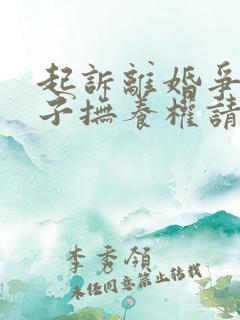 起訴離婚爭
子撫養權請
李秀領
未任同意禁止轉載